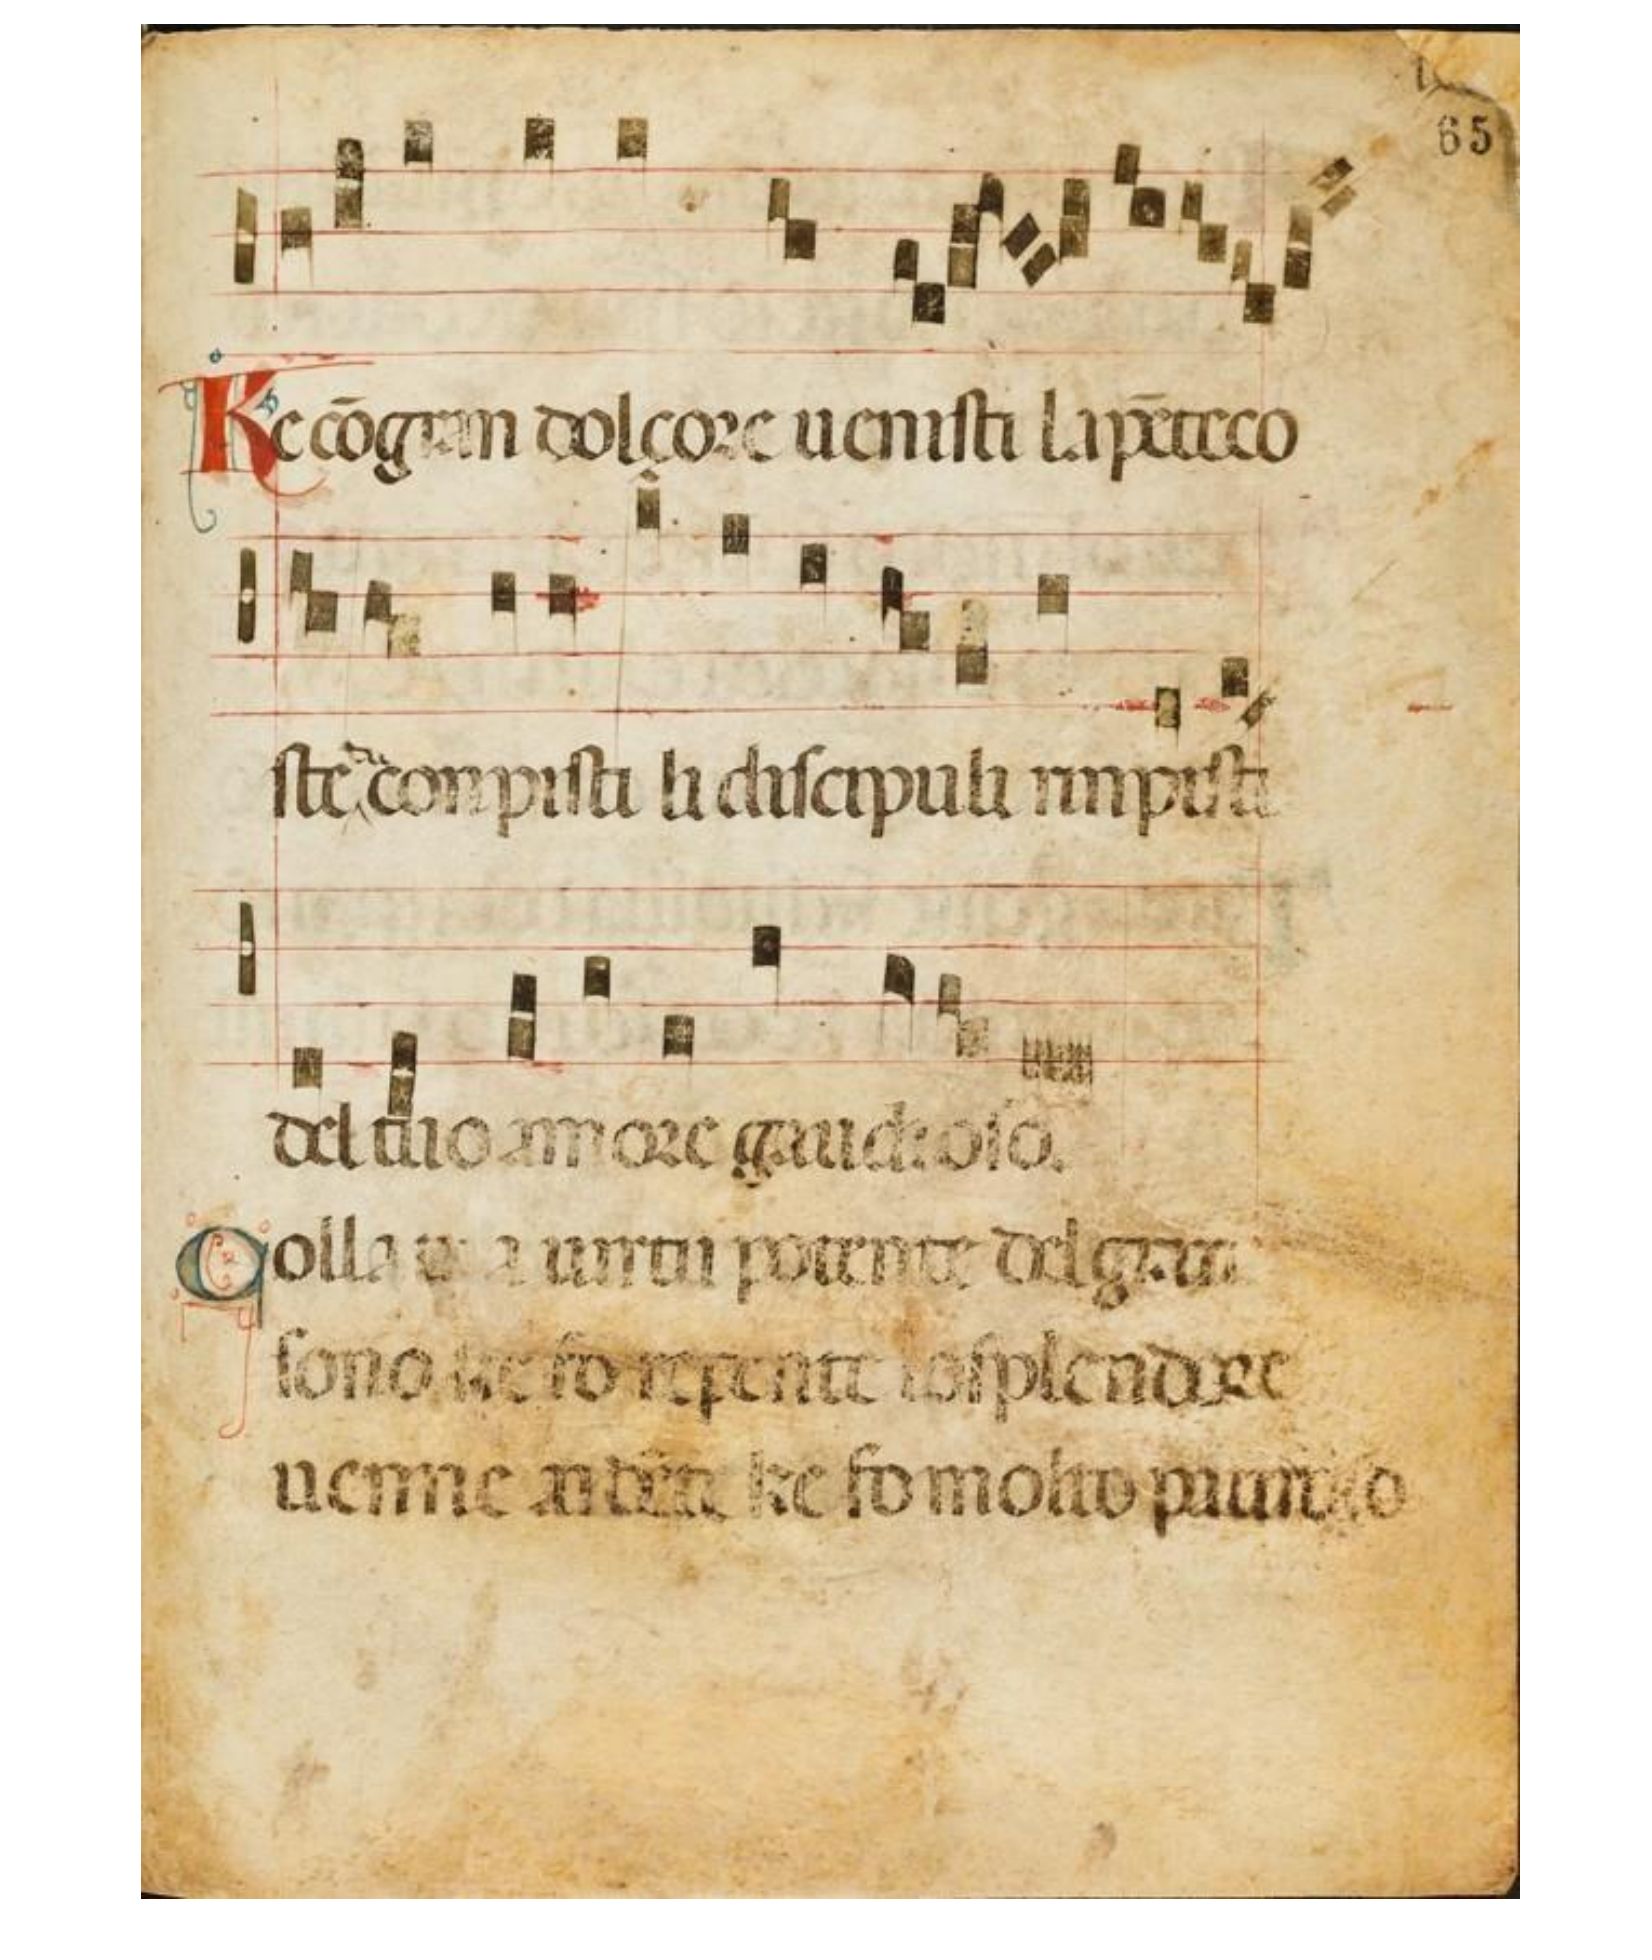 65
Ke cōgran dolçore uenisti lapēteco
ste tu conpisti li discipuli rinpisti
del tuo amore gaudioso.
Colla tua uirtu potente del gran
sono ke fo repente losplendore
uenne ke fo molto